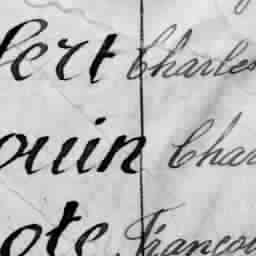 bert Charles
ouin Char
ote Françoi